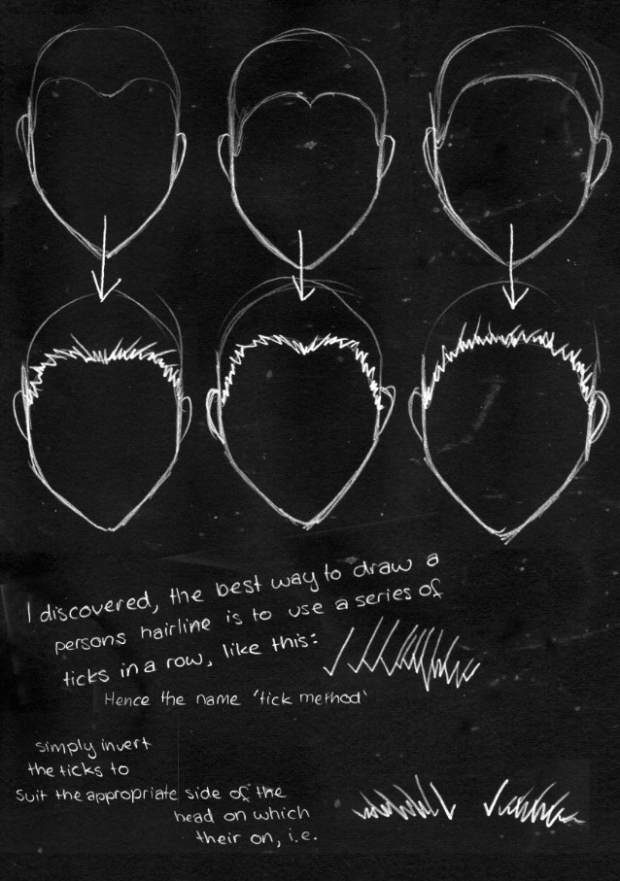 I discovered, the best way to draw a
persons hairline is to use a series of
ticks in a row, like this:
Hence the name 'tick method'
simply invert
the ticks to
suit the appropriate side of the
head on which
their on, i.e.